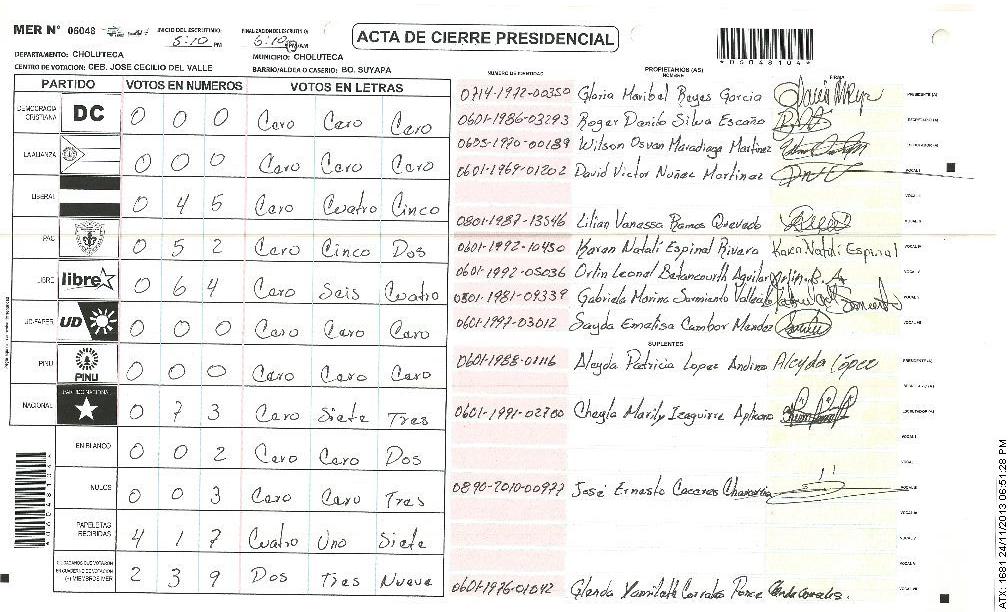 MER N° 06048 INICIO DEL ESCRUTINIO FINALIZACION DEL ESCRUTINIO ACTA DE CIERRE PRESIDENCIAL
5:10 PM 6:10 PM/AM *06048104*
DEPARTAMENTO: CHOLUTECA MUNICIPIO: CHOLUTECA
CENTRO DE VOTACION: CEB. JOSE CECILIO DEL VALLE BARRIO/ALDEA O CASERIO: BO. SUYAPA
PARTIDO VOTOS EN NUMEROS VOTOS EN LETRAS NUMERO DE IDENTIDAD PROPIETARIOS (AS) NOMBRE FIRMA
DEMOCRACIA CRISTIANA DC 0 0 0 Cero Cero Cero
LA ALIANZA 0 0 0 Cero Cero Cero
LIBERAL 0 4 5 Cero Cuatro Cinco
PAC 0 5 2 Cero Cinco Dos
LIBRE libre 0 6 4 Cero Seis Cuatro
UD-FAPER UD 0 0 0 Cero Cero Cero
PINU PINU 0 0 0 Cero Cero Cero
NACIONAL 0 7 3 Cero Siete Tres
EN BLANCO 0 0 2 Cero Cero Dos
NULOS 0 0 3 Cero Cero Tres
PAPELETAS RECIBIDAS 4 1 7 Cuatro Uno Siete
2 3 9 Dos Tres Nueve
0714-1972-00350 Gloria Maribel Reyes Garcia PRESIDENTE (A)
0601-1986-03293 Roger Danilo Silva Escaño SECRETARIO (A)
0605-1990-00189 Wilson Osvan Maradiaga Martinez ESCRUTADOR (A)
0601-1969-01202 David Victor Nuñez Martinez VOCAL I
VOCAL II
0801-1987-13546 Lilian Vanessa Ramos Quevedo VOCAL III
0601-1992-10450 Karen Natalí Espinal Rivera Karen Natali Espinal VOCAL IV
0601-1992-05036 Orlin Leonel Betancourth Aguilar VOCAL V
0801-1981-09339 Gabriela Marina Sarmiento VOCAL VI
0601-1997-03012 Sayda Ematisa Cambor Mendez VOCAL VII
SUPLENTES
0601-1988-01116 Aleyda Patricia Lopez Andino Aleyda López PRESIDENTE (A)
SECRETARIO (A)
0601-1991-02700 Cheyla Marily Izaguirre ESCRUTADOR (A)
VOCAL I
VOCAL II
0890-2010-00977 José Ernesto Caceres VOCAL III
VOCAL IV
VOCAL V
VOCAL VI
0601-1976-01042 Glenda Yamileth Corrales Ponce Glenda Corrales. VOCAL VII
ATX: 1681 24/11/2013 06:51:28 PM